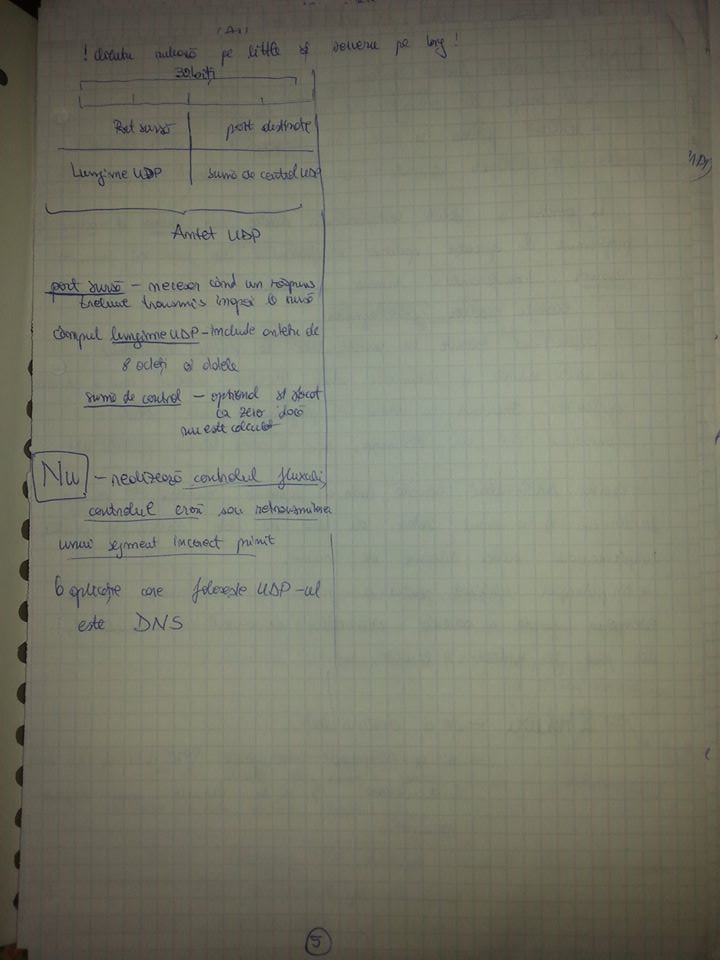 ! clientu rulează pe little și serveru pe big !
32 biți
Port sursă port destinație
Lungime UDP sumă de control UDP
Antet UDP
port sursă – necesar când un răspuns
trebuie transmis înapoi la sursă
câmpul lungime UDP – include antetu de
8 octeți și datele
sumă de control – opțional și
ca zero dacă
nu este calculat
Nu – realizează controlul fluxului,
controlul erori sau retransmiterea
unui segment incorect primit
O aplicație care folosește UDP-ul
este DNS
5